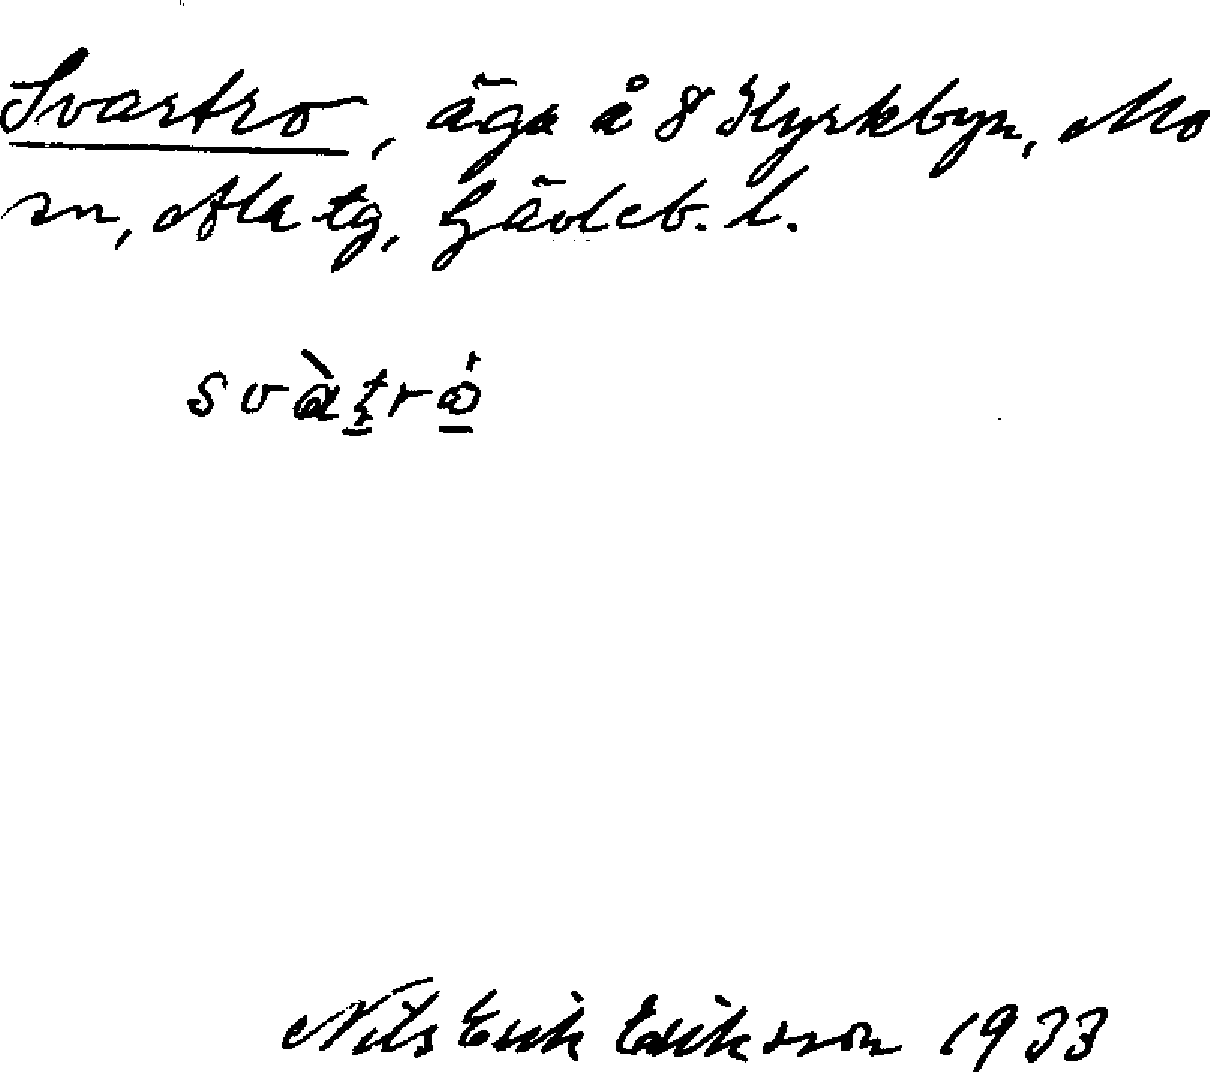 Svartro, äga å 8 Kyrkbyn, Mo
sn, Ala tg, Gävleb. l.
svàtró
Nils Erik Eriksson 1933